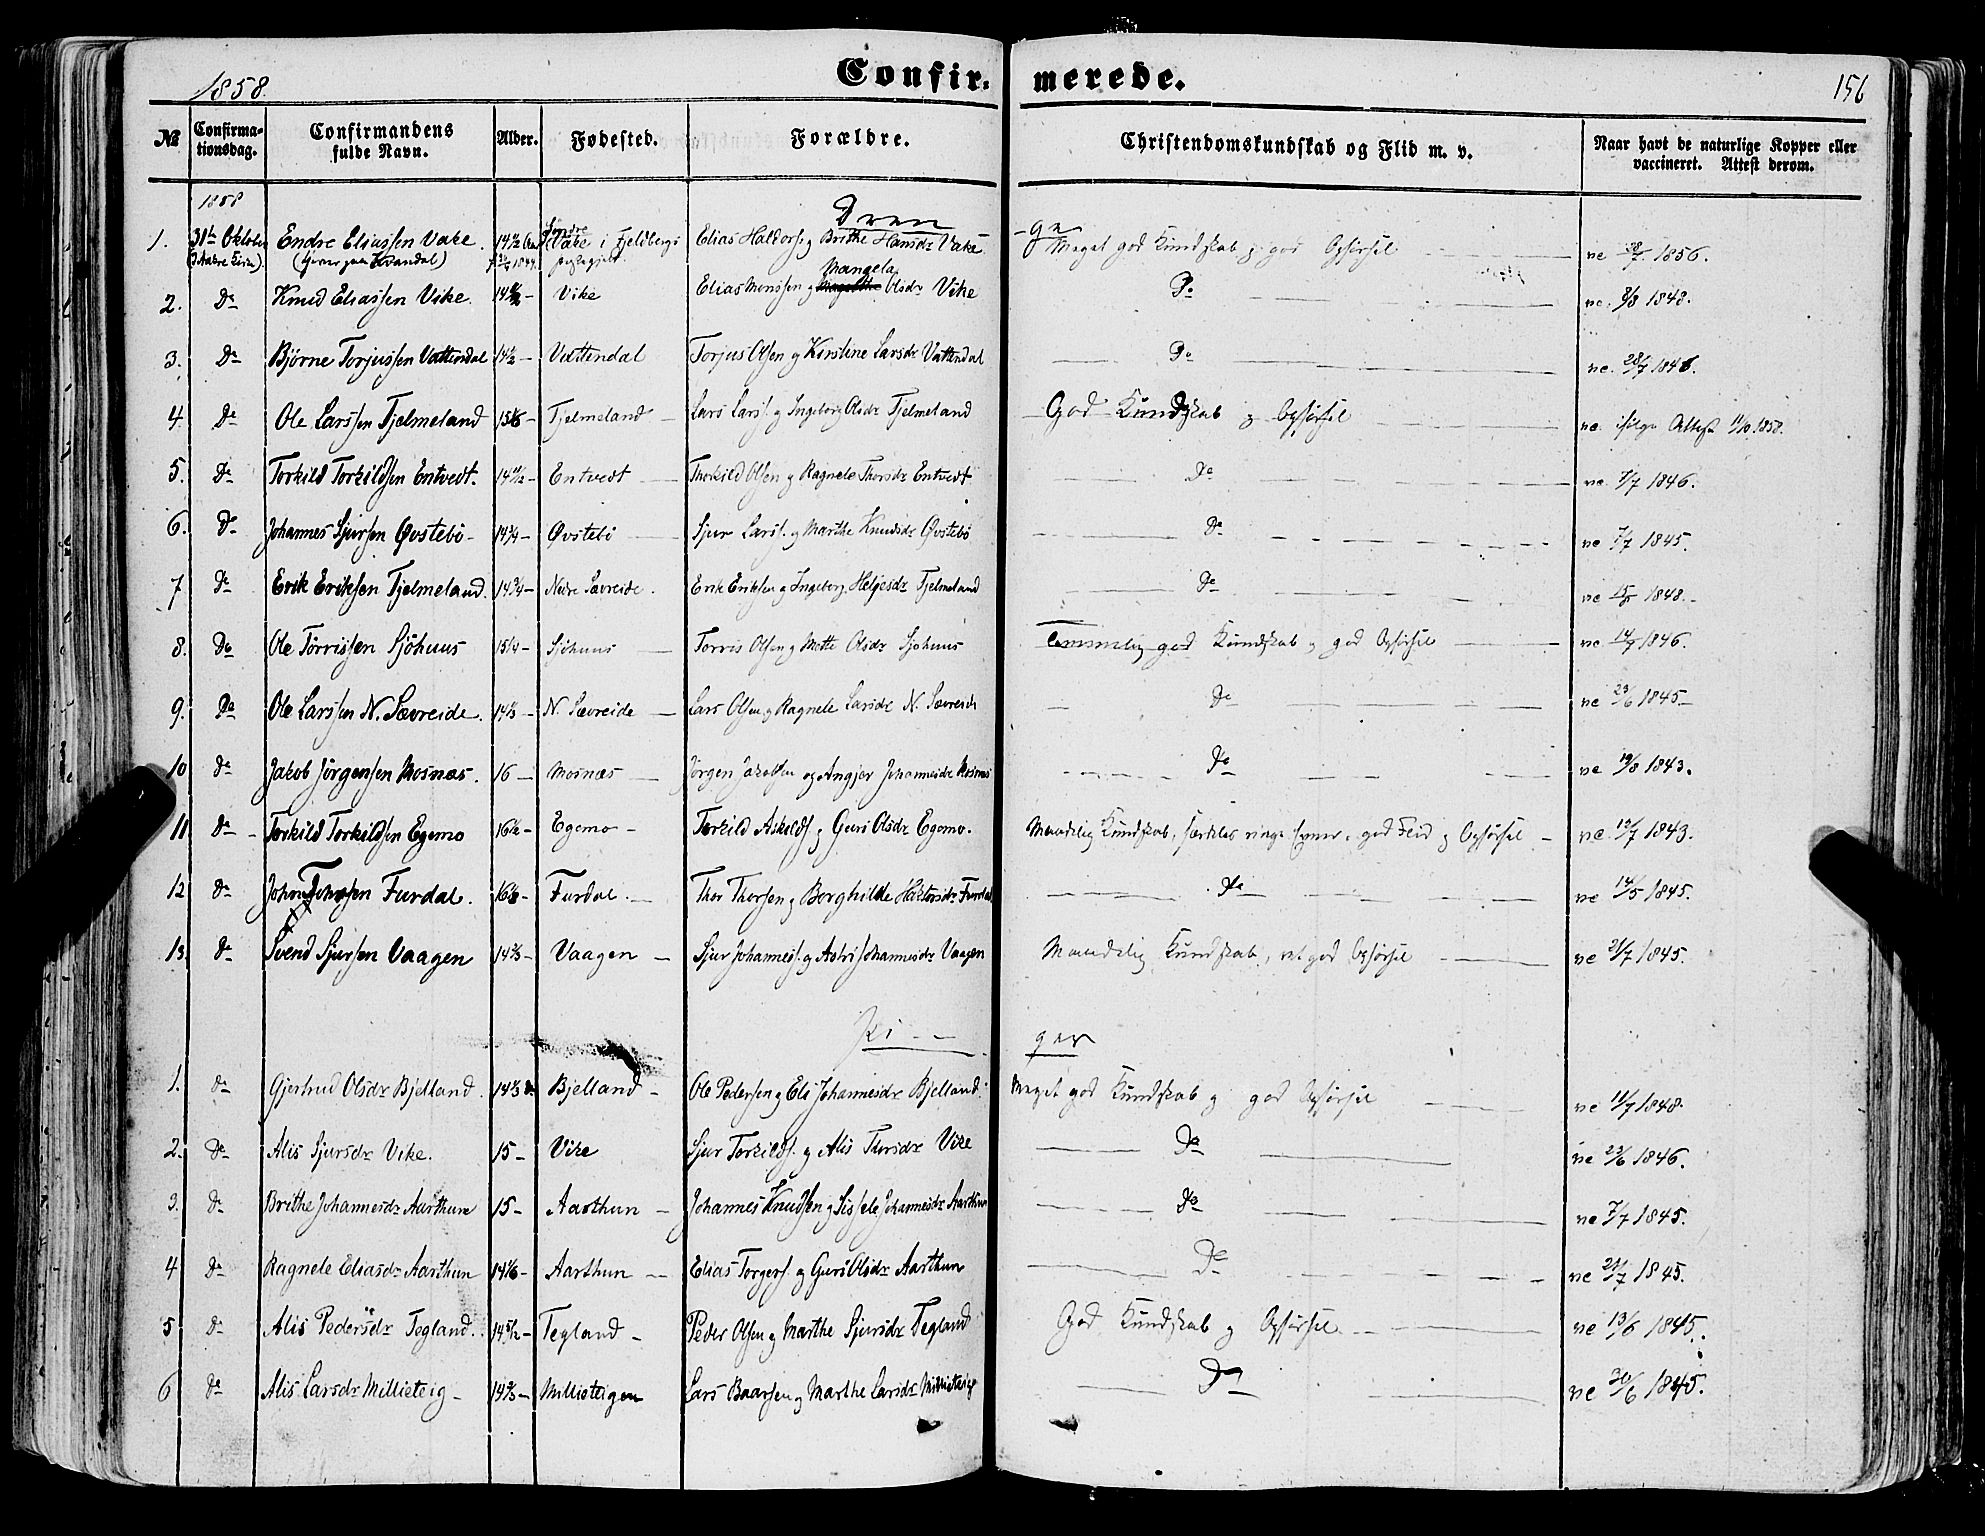 1858.
Confir- merede.
156
№ Confirma- tionsdag. Confirmandens fulde Navn. Alder. Fødested. Forældre. Christendomskundskab og Flid m. v. Naar havt de naturlige Kopper eller vaccineret. Attest derom.
1858
Dren- ge
1. 31te Oktober Endre Eliassen Vake. 14 1/2 Vake i Fjeldbergs Elias Haldors. og Brithe Hansdr Vake Meget god Kundskab og god Opførsel vc 1856.
Præstegjeld
Mangela
2. Do Knud Eliassen Vike. 14 Vike Elias Monssen og Olsdr Vike Do vc. 8/8 1848.
3. Do Bjørne Torjussen Vattendal 14 1/2 Vattendal Torjus Olsen og Kirstine Larsdr Vattendal Do vc. 28/7 1846.
4. Do Ole Larssen Tjelmeland 15 1/6 Tjelmeland Lars Lars. og Ingeborg Olsdr Tjelmeland God Kundskab og Opførsel vc. ifølge Attest 11/10 1858.
5. Do Torkild Torkildsen Entvedt. 14 11/12 Entvedt Thorkild Olsen og Ragnele Thorsdr Entvedt Do vc. 7/7 1846.
6. Do Johannes Sjursen Øvstebö 14 3/4 Øvstebö Sjur Lars. og Marthe Knudsdr Øvstebö Do vc 7/7 1845.
7 Do Erik Eriksen Tjelmeland. 14 3/4 Nedre Sævreide. Erik Eriksen og Ingeborg Helgesdr Tjelmeland Do vc 1848.
8. Do Ole Tørrissen Sjöhuus 15 1/4 Sjöhuus Torris Olsen og Mette Olsdr Sjöhuus Temmelig god Kundskab og god Opførsel vc 14/7 1846.
9. Do Ole Larssen N. Sævreide. 14 2/3 N. Sævreide Lars Olsen og Ragnele Larsdr N. Sævreide Do vc 23/6 1845
10 Do Jakob Jörgensen Mosnæs. 16 Mosnæs Jörgen Jakobsen og Angjær Johannesdr Mosnæs Do vc 19/8 1843.
11 Do Torkild Torkildsen Egemo 16 1/2 Egemo Torkild Askilds. og Guri Olsdr Egemo. Maadelig Kundskab, særdeles ringe Evner, god Flid og Opførsel vc. 13/7 1843.
12 Do Furdal. 16 Furdal. Thor Thorsen og Borghilde Furdal Do vc 14/5 1845.
13. Do Svend Sjursen Vaagen 14 2/3 Vaagen Sjur Johanness. og Astri Johannesdr Vaagen Maadelig Kundskab, ret god Opførsel vc 21/7 1845.
Pi- ger
1. Do Gjertrud Olsdr Bjelland. 14 2/3 Bjelland Ole Pedersen og Eli Johannesdr Bjelland. Meget god Kundskab og god Opførsel vc 11/7 1848.
2. Do Alis Sjursdr Vike. 15 Vike Sjur Torkilds. og Alis Thorsdr Vike Do vc 23/6 1846.
3. Do Brithe Johannesdr Aarthun 15 Aarthun Johannes Knudsen og Sissele Johannesdr Aarthun Do vc 7/7 1845.
4 Do Ragnele Eliasdr Aarthun 14 1/6 Aarthun Elias Torgers. og Guri Olsdr Aarthun Do vc 21/7 1845.
5 Do Alis Pedersdr Tegland. 14 5/12 Tegland Peder Olsen og Marthe Sjursdr Tegland God Kundskab og Opførsel vc 13/6 1845.
6 Do Alis Larsdr Millieteig 14 2/3 Millieteigen Lars Baarsen og Marthe Larsdr Millieteig Do vc 30/6 1845.